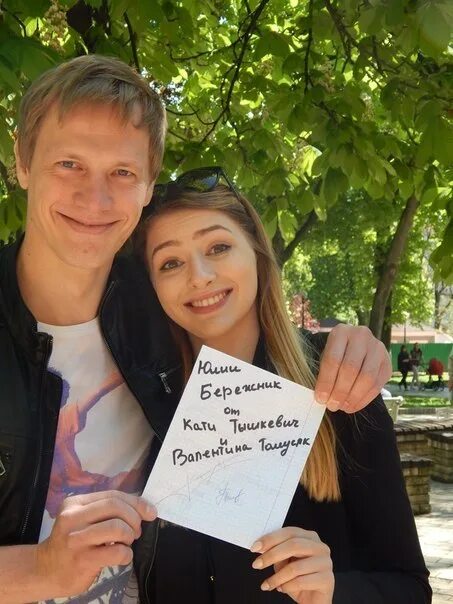 Юлии
Бережник
от
Кати Тышкевич
и
Валентина Томусяк